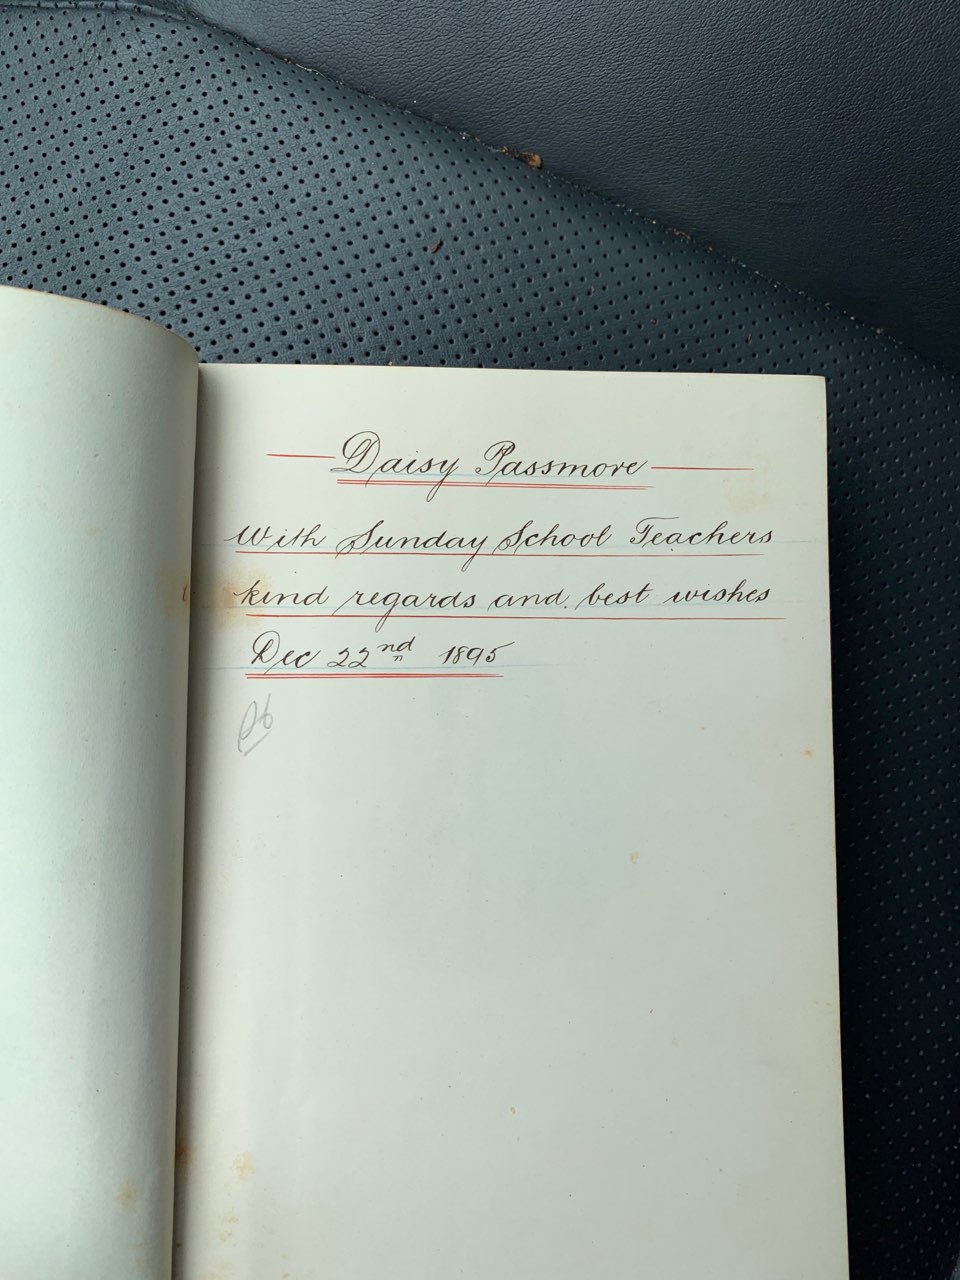 Daisy Passmore
With Sunday School Teachers
kind regards and best wishes
Dec 22nd 1895